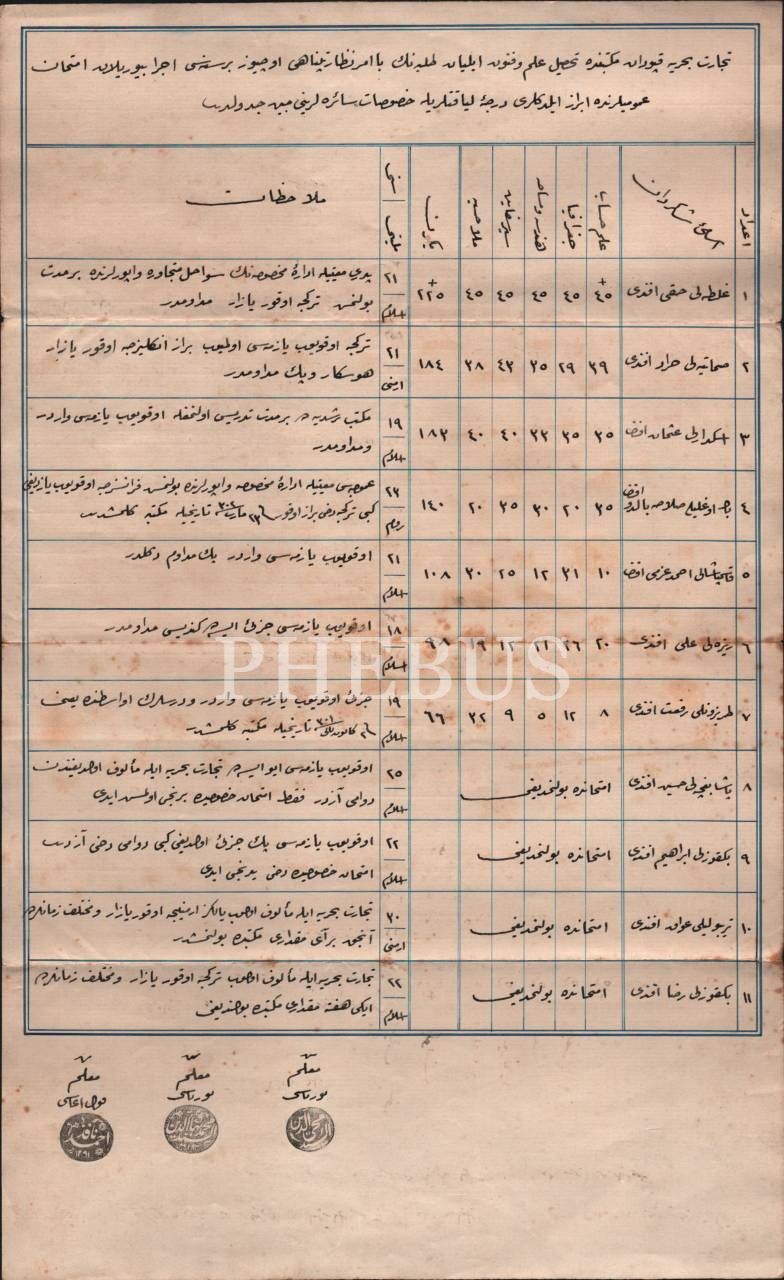 تجارت بحریه قپودان مکتبنده تحصیل علم وفنون ایلیان طلبه‌نك با امر نظارتپناهی اوچیوز برسنه‌سی اجرا بیوریلان امتحان
عمومیلرنده ابراز ایلدکلری درجۀ لیاقتلریله خصوصات سائره لرینی مبین جدولدر
اعداد اسامئ شاکردان علم حساب جغرافیا هندسه ومساحه سیر سفاین ملاحیه یکون سنی ملیتی ملاحظات
١ غلطه لی حقی افندی ٤٥ ٤٥ ٤٥ ٤٥ ٤٥ ٢٢٥ ٢١ اسلام
پدری معیتیله ادارۀ مخصوصه‌نك سواحل متجاوره واپورلرنده برمدت
بولنمش ترکجه اوقور یازار مداومدر
٢ صماتیه لی افندی ٣٩ ٢٩ ٣٥ ٤٣ ٣٨ ١٨٤ ٢١ ارمنی
ترکجه اوقویوب یازمسی اولمیوب براز انکلیزجه اوقور یازار
هوسکار وپك مداومدر
٣ اسکدارلی عثمان افندی ٣٥ ٣٥ ٣٣ ٤٠ ٤٠ ١٨٣ ١٩ اسلام
مکتب رشدیه ده برمدت تدریس اولنمغله اوقویوب یازمسی واردر
ومداومدر
٤ بك اوغلیلی افندی ٣٥ ٢٠ ٣٠ ٣٥ ٢٠ ١٤٠ ٢٣ روم
عموجه‌سی معیتیله ادارۀ مخصوصه واپورلرنده بولنمش فرانسزجه اوقویوب یازدیغی
کبی ترکجه دخی براز اوقور مارت ٣٠١ تاریخیله مکتبه کلمشدر
٥ قاسمپاشالی احمد عزمی افندی ١٠ ٣١ ١٢ ٢٥ ٣٠ ١٠٨ ٢١ اسلام
اوقویوب یازمسی واردر پك مداوم دکلدر
٦ ریزه لی علی افندی ٢٠ ٢٦ ٢١ ١٢ ١٩ ٩٨ ١٨ اسلام
اوقویوب یازمسی جزئ ایسه‌ده کندیسی مداومدر
٧ طربزونلی رفعت افندی ٨ ١٢ ٥ ٩ ٣٢ ٦٦ ١٩ اسلام
جزئ اوقویوب یازمسی واردر ودرسلرك اواسطنده یعنی
٣٠١ تاریخیله مکتبه کلمشدر
٨ پاشابغچه‌لی حسین افندی امتحانده بولنمدیغی ٢٥ اسلام
اوقویوب یازمسی ایو ایسه‌ده تجارت بحریه ایله مألوف اولدیغندن
دوامی آزدر فقط امتحان خصوصیده برنجی اولمش ایدی
٩ بکقوزلی ابراهیم افندی امتحانده بولنمدیغی ٢٢ اسلام
اوقویوب یازمسی پك جزئ اولدیغی کبی دوامی دخی آزدر
امتحان خصوصیده دخی یدنجی ایدی
١٠ افندی امتحانده بولنمدیغی ٣٠ ارمنی
تجارت بحریه ایله مألوف اولوب یالکز ارمنیجه اوقور یازار ومختلف زمانلرده
آنجق برآی مقداری مکتبده بولنمشدر
١١ بکقوزلی رضا افندی امتحانده بولنمدیغی ٢٢ اسلام
تجارت بحریه ایله مألوف اولوب ترکجه اوقور یازار ومختلف زمانلرده
ایکی هفته مقداری مکتبده بولندیغی
معلم معلم معلم
یوزباشی یوزباشی قول اغاسی
PHEBUS